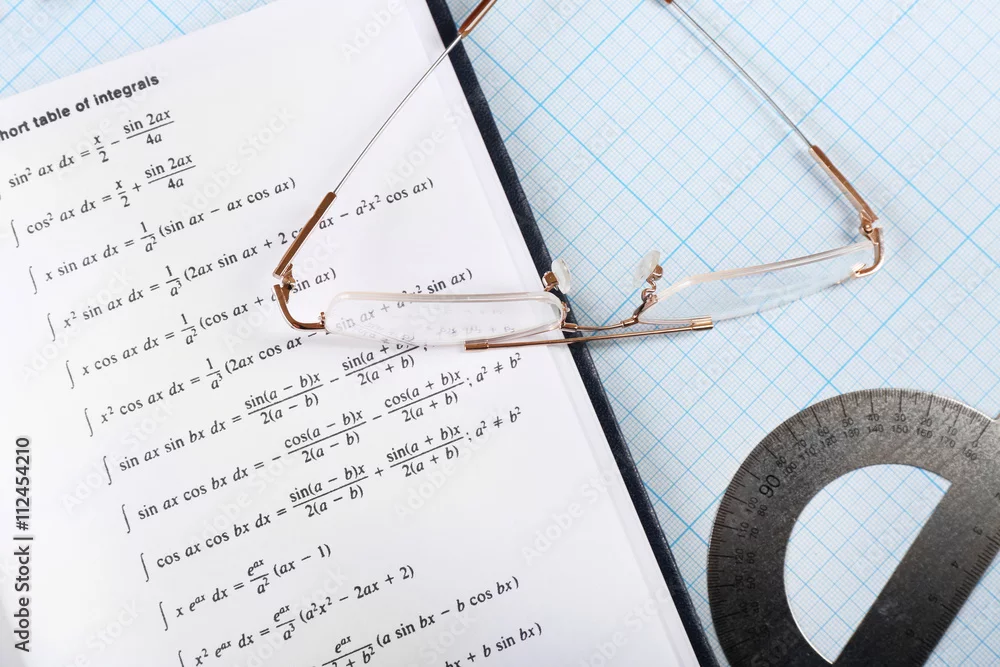 hort table of integrals
sin² ax dx = x/2 - sin 2ax/4a
∫ cos² ax dx = x/2 + sin 2ax/4a
∫ x sin ax dx = 1/a² (sin ax - ax cos ax)
∫ x² sin ax dx = 1/a³ (2ax sin ax + 2 c ax - a²x² cos ax)
∫ x cos ax dx = 1/a² (cos ax + ax sin ax)
∫ x² cos ax dx = 1/a³ (2ax cos ax sin ax)
∫ sin ax sin bx dx = sin(a - b)x/2(a - b) - sin(a + b/2(a + b) ;
∫ sin ax cos bx dx = - cos(a - b)x/2(a - b) - cos(a + b)x/2(a + b) ; a² ≠ b²
∫ cos ax cos bx dx = sin(a - b)x/2(a - b) + sin(a + b)x/2(a + b) ; a² ≠ b²
∫ x eᵃˣ dx = eᵃˣ/a² (ax - 1)
∫ x² eᵃˣ dx = eᵃˣ/a³ (a²x² - 2ax + 2)
∫ eᵃˣ/a² + b² (a sin bx - b cos bx)
bx + b sin bx)
0 10 20 30 40 50 60 70 80 90
180 170 160 150 140 130 120 110 100
3
4
5
Adobe Stock | #112454210